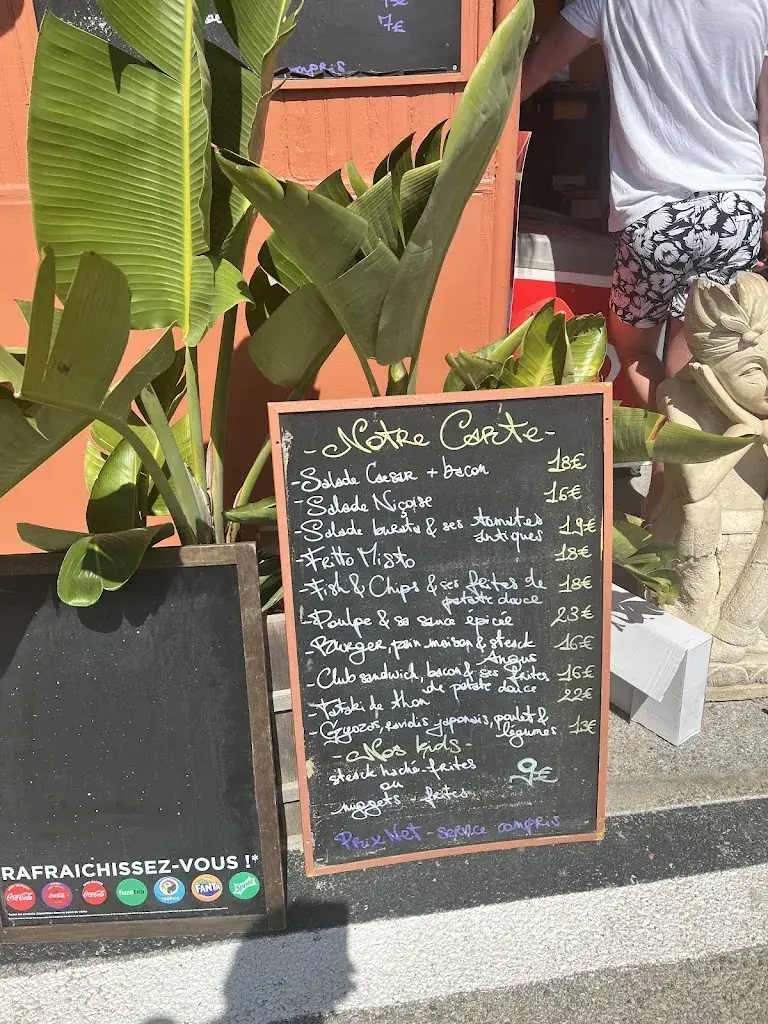 7€
compris
- Notre Carte -
- Salade Caesar + bacon 18€
- Salade Niçoise 16€
- Salade burata & ses tomates 19€
antiques
- Fritto Misto 18€
- Fish & Chips & ses frites de 18€
patate douce
- Poulpe & sa sauce épicée 23€
- Burger, pain maison & steack 16€
Angus
- Club sandwich, bacon & ses frites 16€
de patate douce
- Tataki de thon 22€
- Gyozas, raviolis japonais, poulet & 13€
légumes
- Nos kids -
steack haché - frites
ou 9€
nuggets - frites
Prix Net - service compris
RAFRAICHISSEZ-VOUS !*
Coca-Cola Coca-Cola Coca-Cola fuzetea TROPICO FANTA Sprite